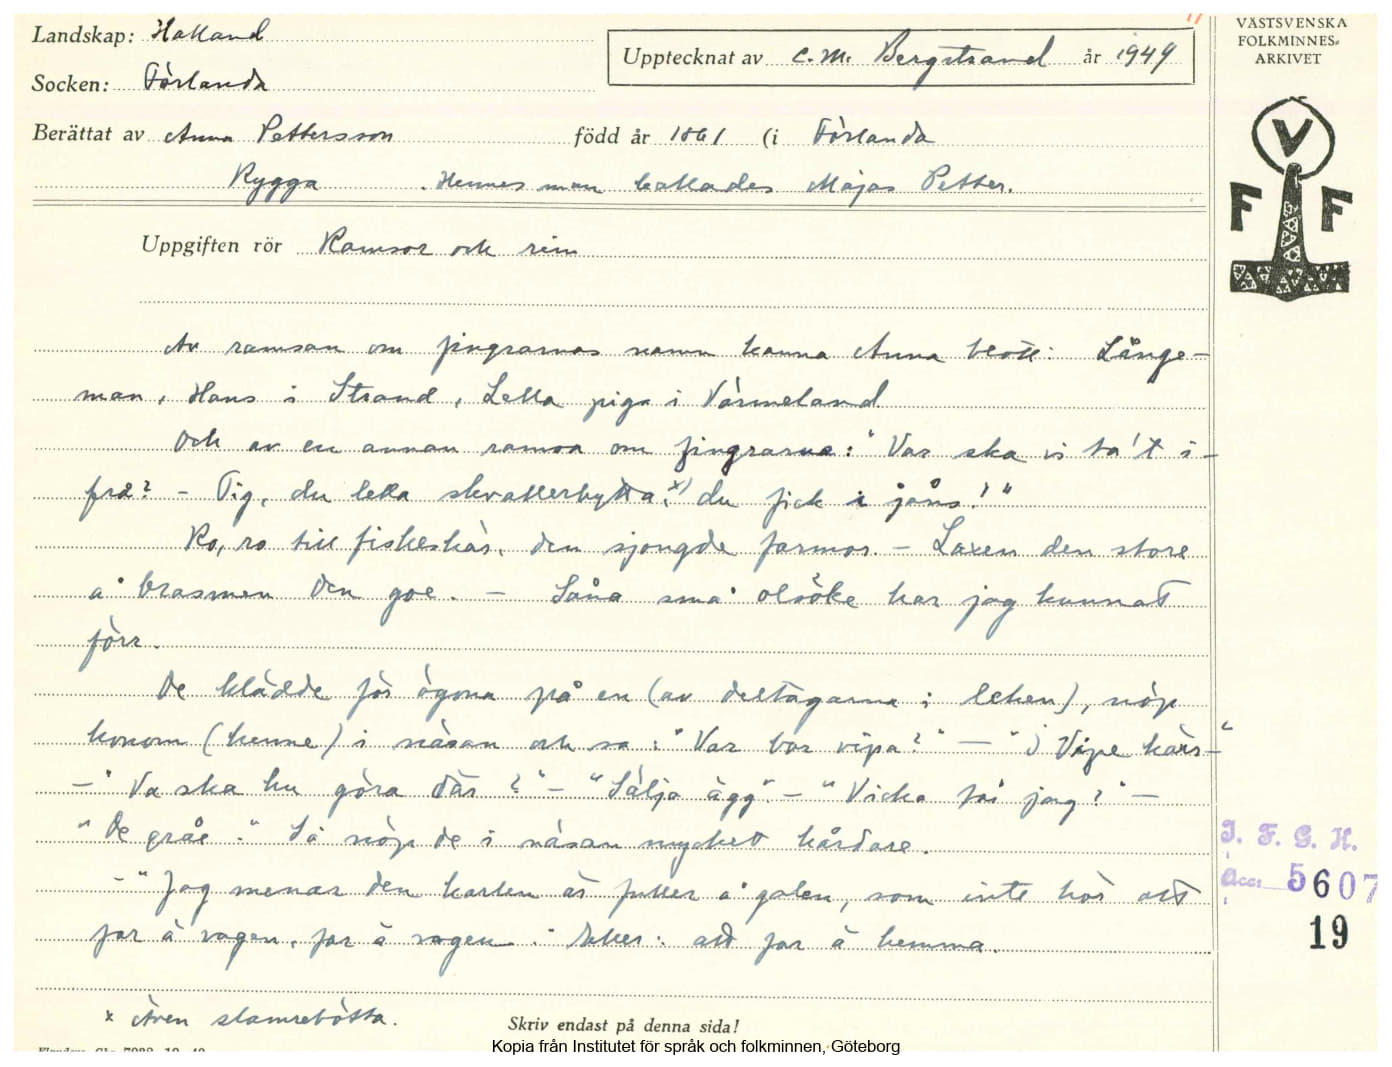 Landskap: Halland
Socken: Förlanda
Upptecknat av C. M. Bergstrand år 1949
VÄSTSVENSKA
FOLKMINNES-
ARKIVET
V
F F
Berättat av Anna Pettersson född år 1861 (i Förlanda
Rygga . Hennes man kallades Majas Petter.
Uppgiften rör Ramsor och rim
Av ramsan om fingrarnas namn kunna Anna blott: Långe-
man, Hans i Strand, Lella piga i Värmeland
Och av en annan ramsa om fingrarna: "Var ska vi ta't i-
frå? – Tig, du lella skvallerbytta,x) du fick i jåns!"
Ro, ro till fiskeskär, den sjongde farmor. – Laxen den store
å brasmen den goe. – Såna små olsöke har jag kunnat
förr.
De klädde för ögona på en (av deltagarna i leken), nöp
honom (henne) i näsan och sa: "Var bor vipa?" – "I Vipe kärr"
– "Va ska hu göra där?" – "Sälja ägg". – "Vicka får jag?" –
"De gråe." Så nöp de i näsan mycket hårdare.
– "Jag menar den karlen är fuller å galen, som inte hör att
far ä vagen, far ä vagen." Eller: att far ä hemma.
x Även slamrebötta.
Skriv endast på denna sida!
I. F. G. H.
Acc: 5607
19
Kopia från Institutet för språk och folkminnen, Göteborg